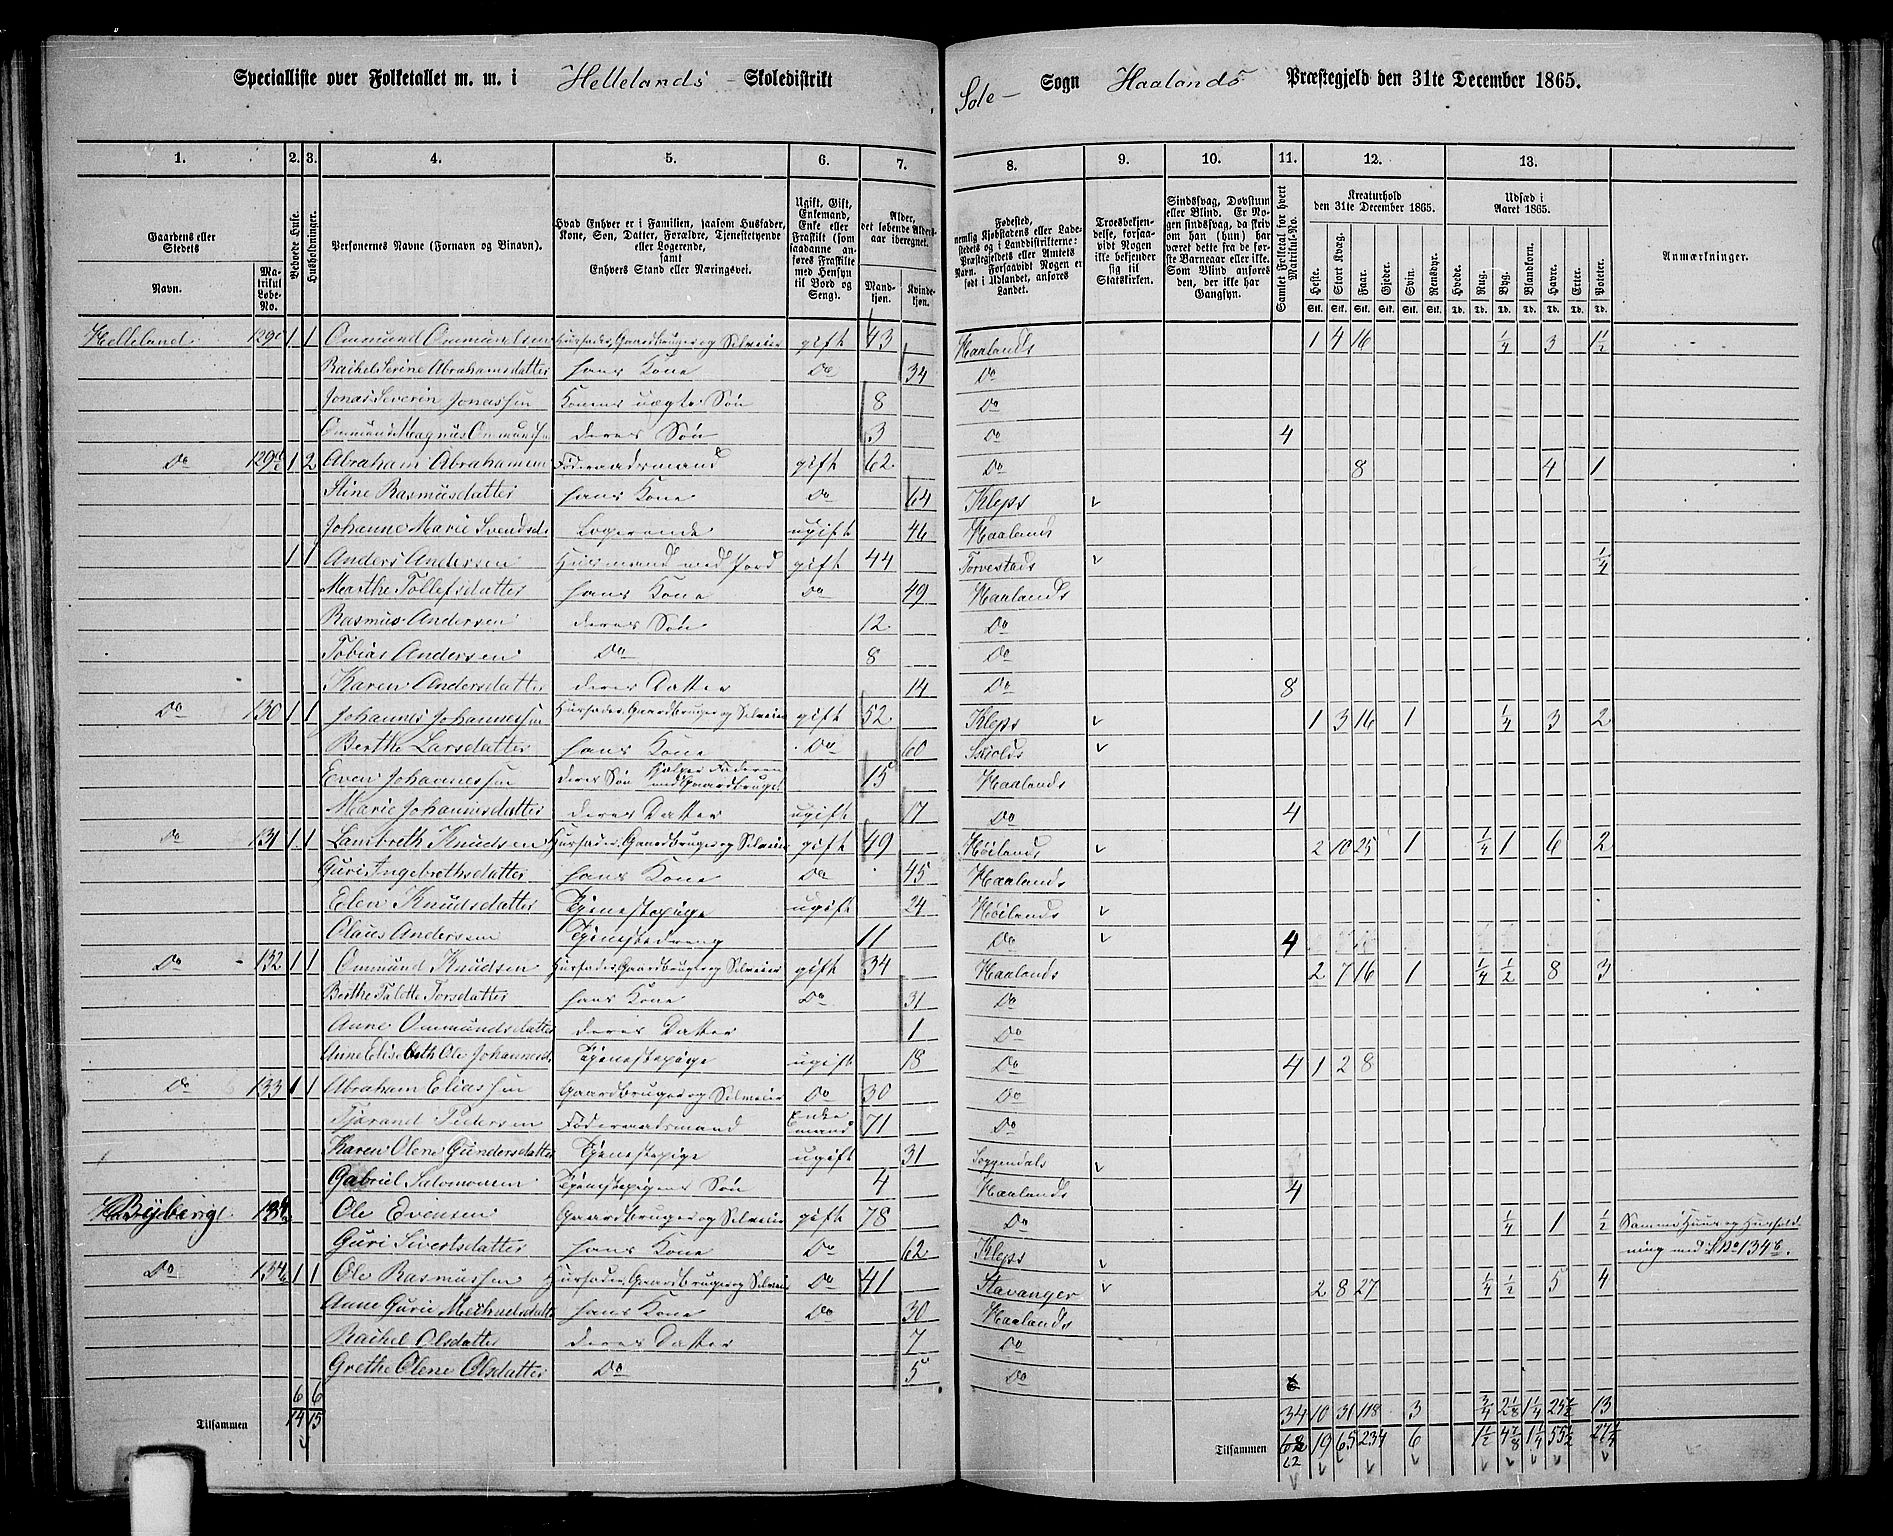 Specialliste over Folketallet m. m. i Hellelands Skoledistrikt Sole Sogn Haalands Præstegjeld den 31te December 1865.
1. 2. 3. 4. 5. 6. 7. 8. 9. 10. 11. 12. 13.
Gaardens eller Stedets Navn. Matrikul Løbe-No.
Bebyede Huse.
Husholdninger.
Personernes Navne (Fornavn og Binavn).
Hvad Enhver er i Familien, saasom Husfader, Kone, Søn, Datter, Forældre, Tjenestetyende eller Logerende, samt Enhvers Stand eller Næringsvei.
Ugift, Gift, Enkemand, Enke eller Fraskilt (som saadanne anføres Fraskilte med Hensyn til Bord og Seng).
Alder, det løbende Aldersaar iberegnet. Mandkjøn. Kvindekjøn.
Fødested, nemlig Kjøbstadens eller Ladestedets og i Landdistrikterne: Præstegjeldets eller Amtets Navn. Forsaavidt Nogen er født i Udlandet, anføres Landet.
Troesbekjendelse, forsaavidt Nogen ikke bekjender sig til Statskirken.
Sindssvag, Døvstum eller Blind. Er Nogen sindssvag, da skriv om han (hun) har været dette fra de første Barneaar eller ikke. Som Blind anføres den, der ikke har Gangsyn.
Samlet Folketal for hvert Matrikul-No.
Kreaturhold den 31te December 1865. Heste. Stort Kvæg. Faar. Gjeder. Svin. Rensdyr.
Udsæd i Aaret 1865. Hvede. Rug. Byg. Blandkorn. Havre. Erter. Poteter.
Anmærkninger.
Stk. Stk. Stk. Stk. Stk. Stk. Td. Td. Td. Td. Td. Td. Td.
Helleland 129c 1 1 Ommund Ommundsen Husfader, Gaardbruger og Selveier gift 43 Haalands 1 4 16 1/4 3 1 1/2
Rachel Serine Abrahamsdatter hans Kone Do 34 Do
Jonas Severin Jonassen Konens uægte Søn 8 Do
Ommund Magnus Ommundsen deres Søn 3 Do 4
Do 129d 1 2 Abraham Abrahamsen Føderaadsmand gift 62 Do 8 4 1
Stine Rasmusdatter hans Kone Do 64 Kleps v
Johanne Marie Svendsd. Logerende ugift 46 Haalands
1 1 Anders Andersen Husmand med Jord gift 44 Torvestads v 1/4
Marthe Tollefsdatter hans Kone Do 49 Haalands
Rasmus Andersen deres Søn 12 Do
Tobias Andersen Do 8 Do
Karen Andersdatter deres Datter 14 Do 8
Do 130 1 1 Johannes Johannessen Husfader, Gaardbruger og Selveier gift 52 Kleps v 1 3 16 1 1/4 3 2
Berthe Larsdatter hans Kone Do 60 Skiolds v
Even Johannessen deres Søn hjelper Faderen med Gaardbruget 15 Haalands
Marie Johannesdatter deres Datter ugift 17 Do 4
Do 131 1 1 Lambreth Knudsen Husfader, Gaardbruger og Selveier gift 49 Høilands v 2 10 25 1 1/4 1 6 2
Guri Ingebrethsdatter hans Kone Do 45 Haalands
Elen Knudsdatter Tjenestepige ugift 24 Høilands v
Olaus Andersen Tjenestedreng 11 Do v 4
Do 132 1 1 Ommund Knudsen Husfader, Gaardbruger og Selveier gift 34 Haalands 2 7 16 1 1/4 1/2 8 3
Berthe Torsdatter hans Kone Do 31 Do
Anne Ommundsdatter deres Datter 1 Do
Anne Elisebeth Ole Johannesd. Tjenestepige ugift 18 Do 4 1 2 8
Do 133 1 1 Abraham Eliassen Gaardbruger og Selveier Do 30 Do
Tjorand Pedersen Føderaadsmand Enkemand 71 Do
Karen Olene Gundersdatter Tjenestepige ugift 31 Soggendals v
Gabriel Salomonsen Tjenestepigens Søn 4 Haalands 4
Byberg 134a Ole Evensen Gaardbruger og Selveier gift 78 Do 1/4 1 1/2 Samme Huus og Husholdning med L No 134b.
Guri Sivertsdatter hans Kone Do 62 Kleps v
Do 134b 1 1 Ole Rasmussen Husfader, Gaardbruger og Selveier Do 41 Stavanger v 2 8 27 1/4 1/2 5 4
Anne Gurie Michaelsdatter hans Kone Do 30 Haalands
Rachel Olsdatter deres Datter 7 Do
Grethe Olene Olsdatter Do 5 Do 6
6 6 34 10 31 118 3 3/4 2 1/8 1 1/4 25 1/2 13
Tilsammen 14 15 Tilsammen 62 19 65 234 6 1 1/2 4 7/8 1 1/4 55 1/2 27 1/4
62